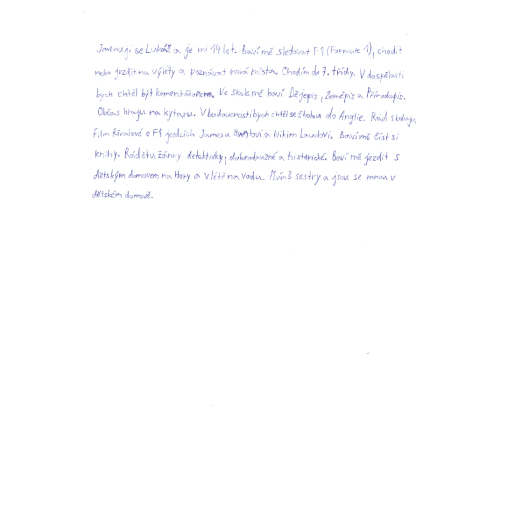 Jmenuji se Lukáš a je mi 14 let. Baví mě sledovat F1 (Formule 1), chodit
nebo jezdit na výlety a poznávat nová místa. Chodím do 7. třídy. V dospělosti
bych chtěl být komentátorem. Ve škole mě baví Dějepis, Zeměpis a Přírodopis.
Občas hraju na kytaru. V budoucnosti bych chtěl se
do Anglie. Rád sleduju
film Rivalové o F1 jezdcích Jamesu Huntovi a Nikim Laudovi. Baví mě číst si
knihy. Rád čtu žánry detektivky, dobrodružné a historické. Baví mě jezdit s
dětským domovem na hory a v létě na vodu. Mám 3 sestry a jsou se mnou v
dětském domově.